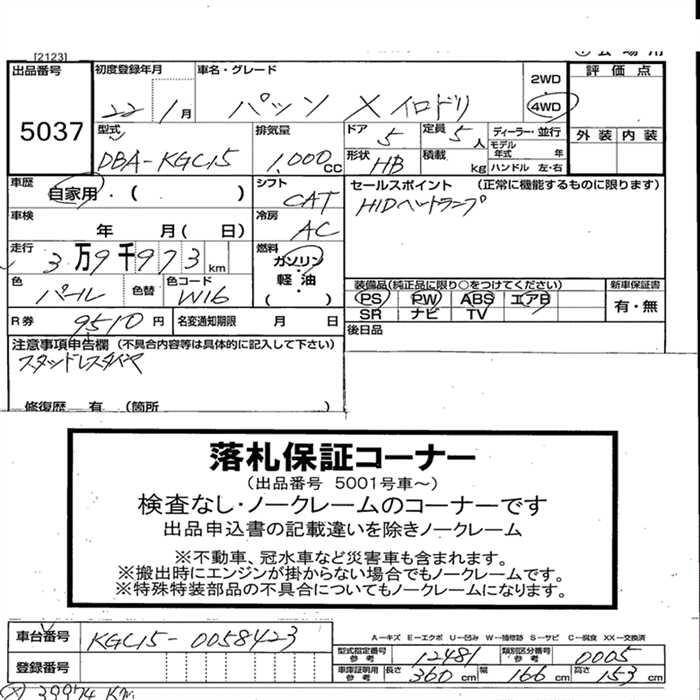 [2123]
出品番号 5037
初度登録年月 22 1月
車名・グレード パッソ X イロドリ
2WD
4WD
評価点
外装 内装
型式 DBA-KGC15
排気量 1,000 CC
ドア 5
定員 5人
ディーラー・並行
モデル年式 年
形状 HB
積載 kg
ハンドル 左・右
車歴 自家用・( )
シフト CAT
セールスポイント (正常に機能するものに限ります)
HIDヘッドランプ
車検 年 月( 日)
冷房 AC
走行 3万9千973km
燃料 ガソリン・軽油・( )
色 パール
色替
色コード W16
装備品(純正品に限り○をつけてください)
PS PW ABS エアB
SR ナビ TV
新車保証書 有・無
R券 9510円
名変通知期限 月 日
後日品
注意事項申告欄 (不具合内容等は具体的に記入して下さい)
スタッドレスタイヤ
修復歴 有 (箇所 )
落札保証コーナー
(出品番号 5001号車～)
検査なし・ノークレームのコーナーです
出品申込書の記載違いを除きノークレーム
※不動車、冠水車など災害車も含まれます。
※搬出時にエンジンが掛からない場合でもノークレームです。
※特殊特装部品の不具合についてもノークレームになります。
車台番号 KGC15-0058423
登録番号
A－キズ E－エクボ U－凹み W－補修跡 S－サビ C－腐食 XX－交換済
型式指定番号参考 12481
類別区分番号参考 0005
車庫証明用参考 長さ 360cm 幅 166cm 高さ 153cm
39974 Km